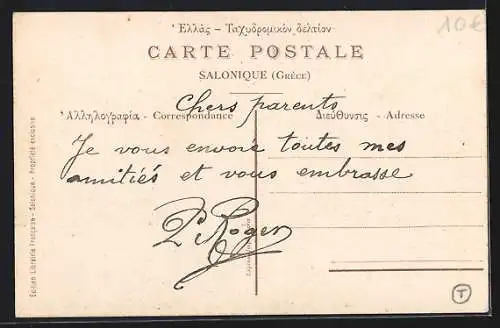 Ἑλλάς – Ταχυδρομικὸν δελτίον
10€
CARTE POSTALE
SALONIQUE (GRÈCE)
Chers parents
Ἀλληλογραφία - Correspondance
Διεύθυνσις - Adresse
Je vous envoie toutes mes
amitiés et vous embrasse
P. Roger
Edition Librairie Française - Salonique - Propriété exclusive
T